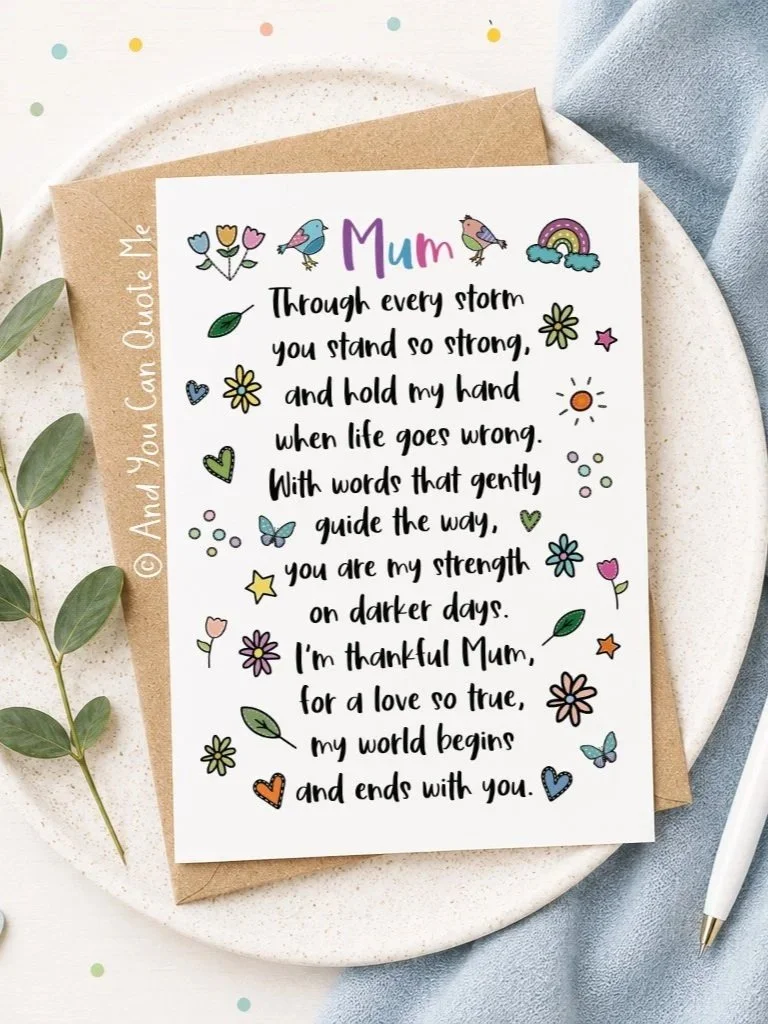 Mum
Through every storm
you stand so strong,
and hold my hand
when life goes wrong.
With words that gently
guide the way,
you are my strength
on darker days.
I'm thankful Mum,
for a love so true,
my world begins
and ends with you.
© And You Can Quote Me